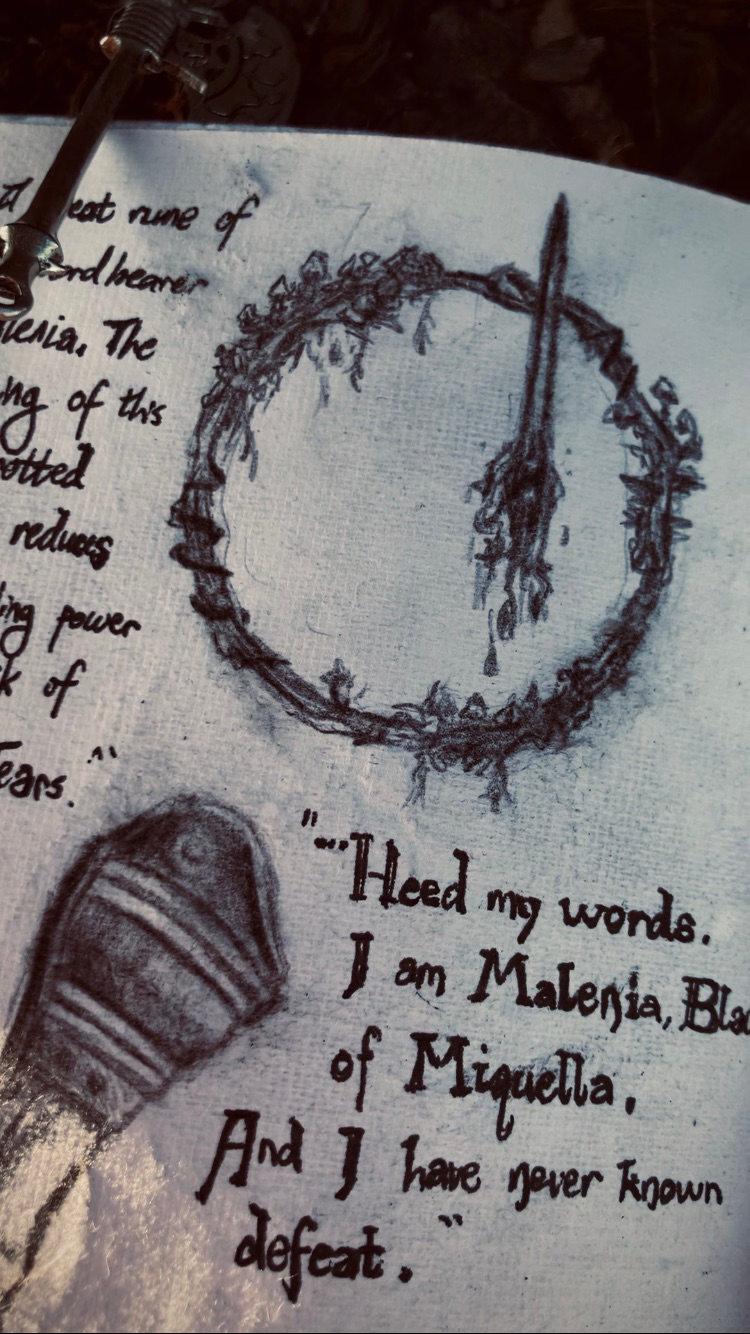 eat rune of
ordbearer
lenia. The
ing of this
otted
reduces
ling power
k of
Tears."
"...Heed my words.
I am Malenia, Bla
of Miquella.
And I have never known
defeat."